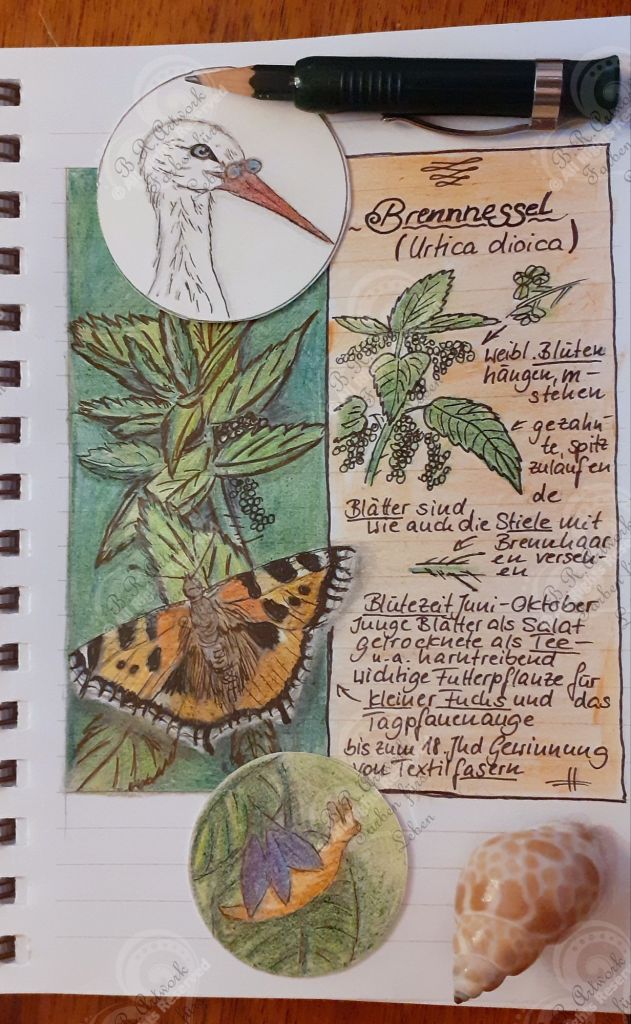 Brennnessel
(Urtica dioica)
weibl. Blüten
hängen, m-
stehen
gezahn-
te, spitz
zulaufen
de
Blätter sind
wie auch die Stiele mit
Brennhaar
en verseh-
en
Blütezeit Juni-Oktober
junge Blätter als Salat
getrocknete als Tee-
u.a. harntreibend
wichtige Futterpflanze für
kleiner Fuchs und das
Tagpfauenauge
bis zum 18. Jhd Gewinnung
von Textilfasern
B.R.Artwork
Farben fürs
Leben
© All Rights Reserved